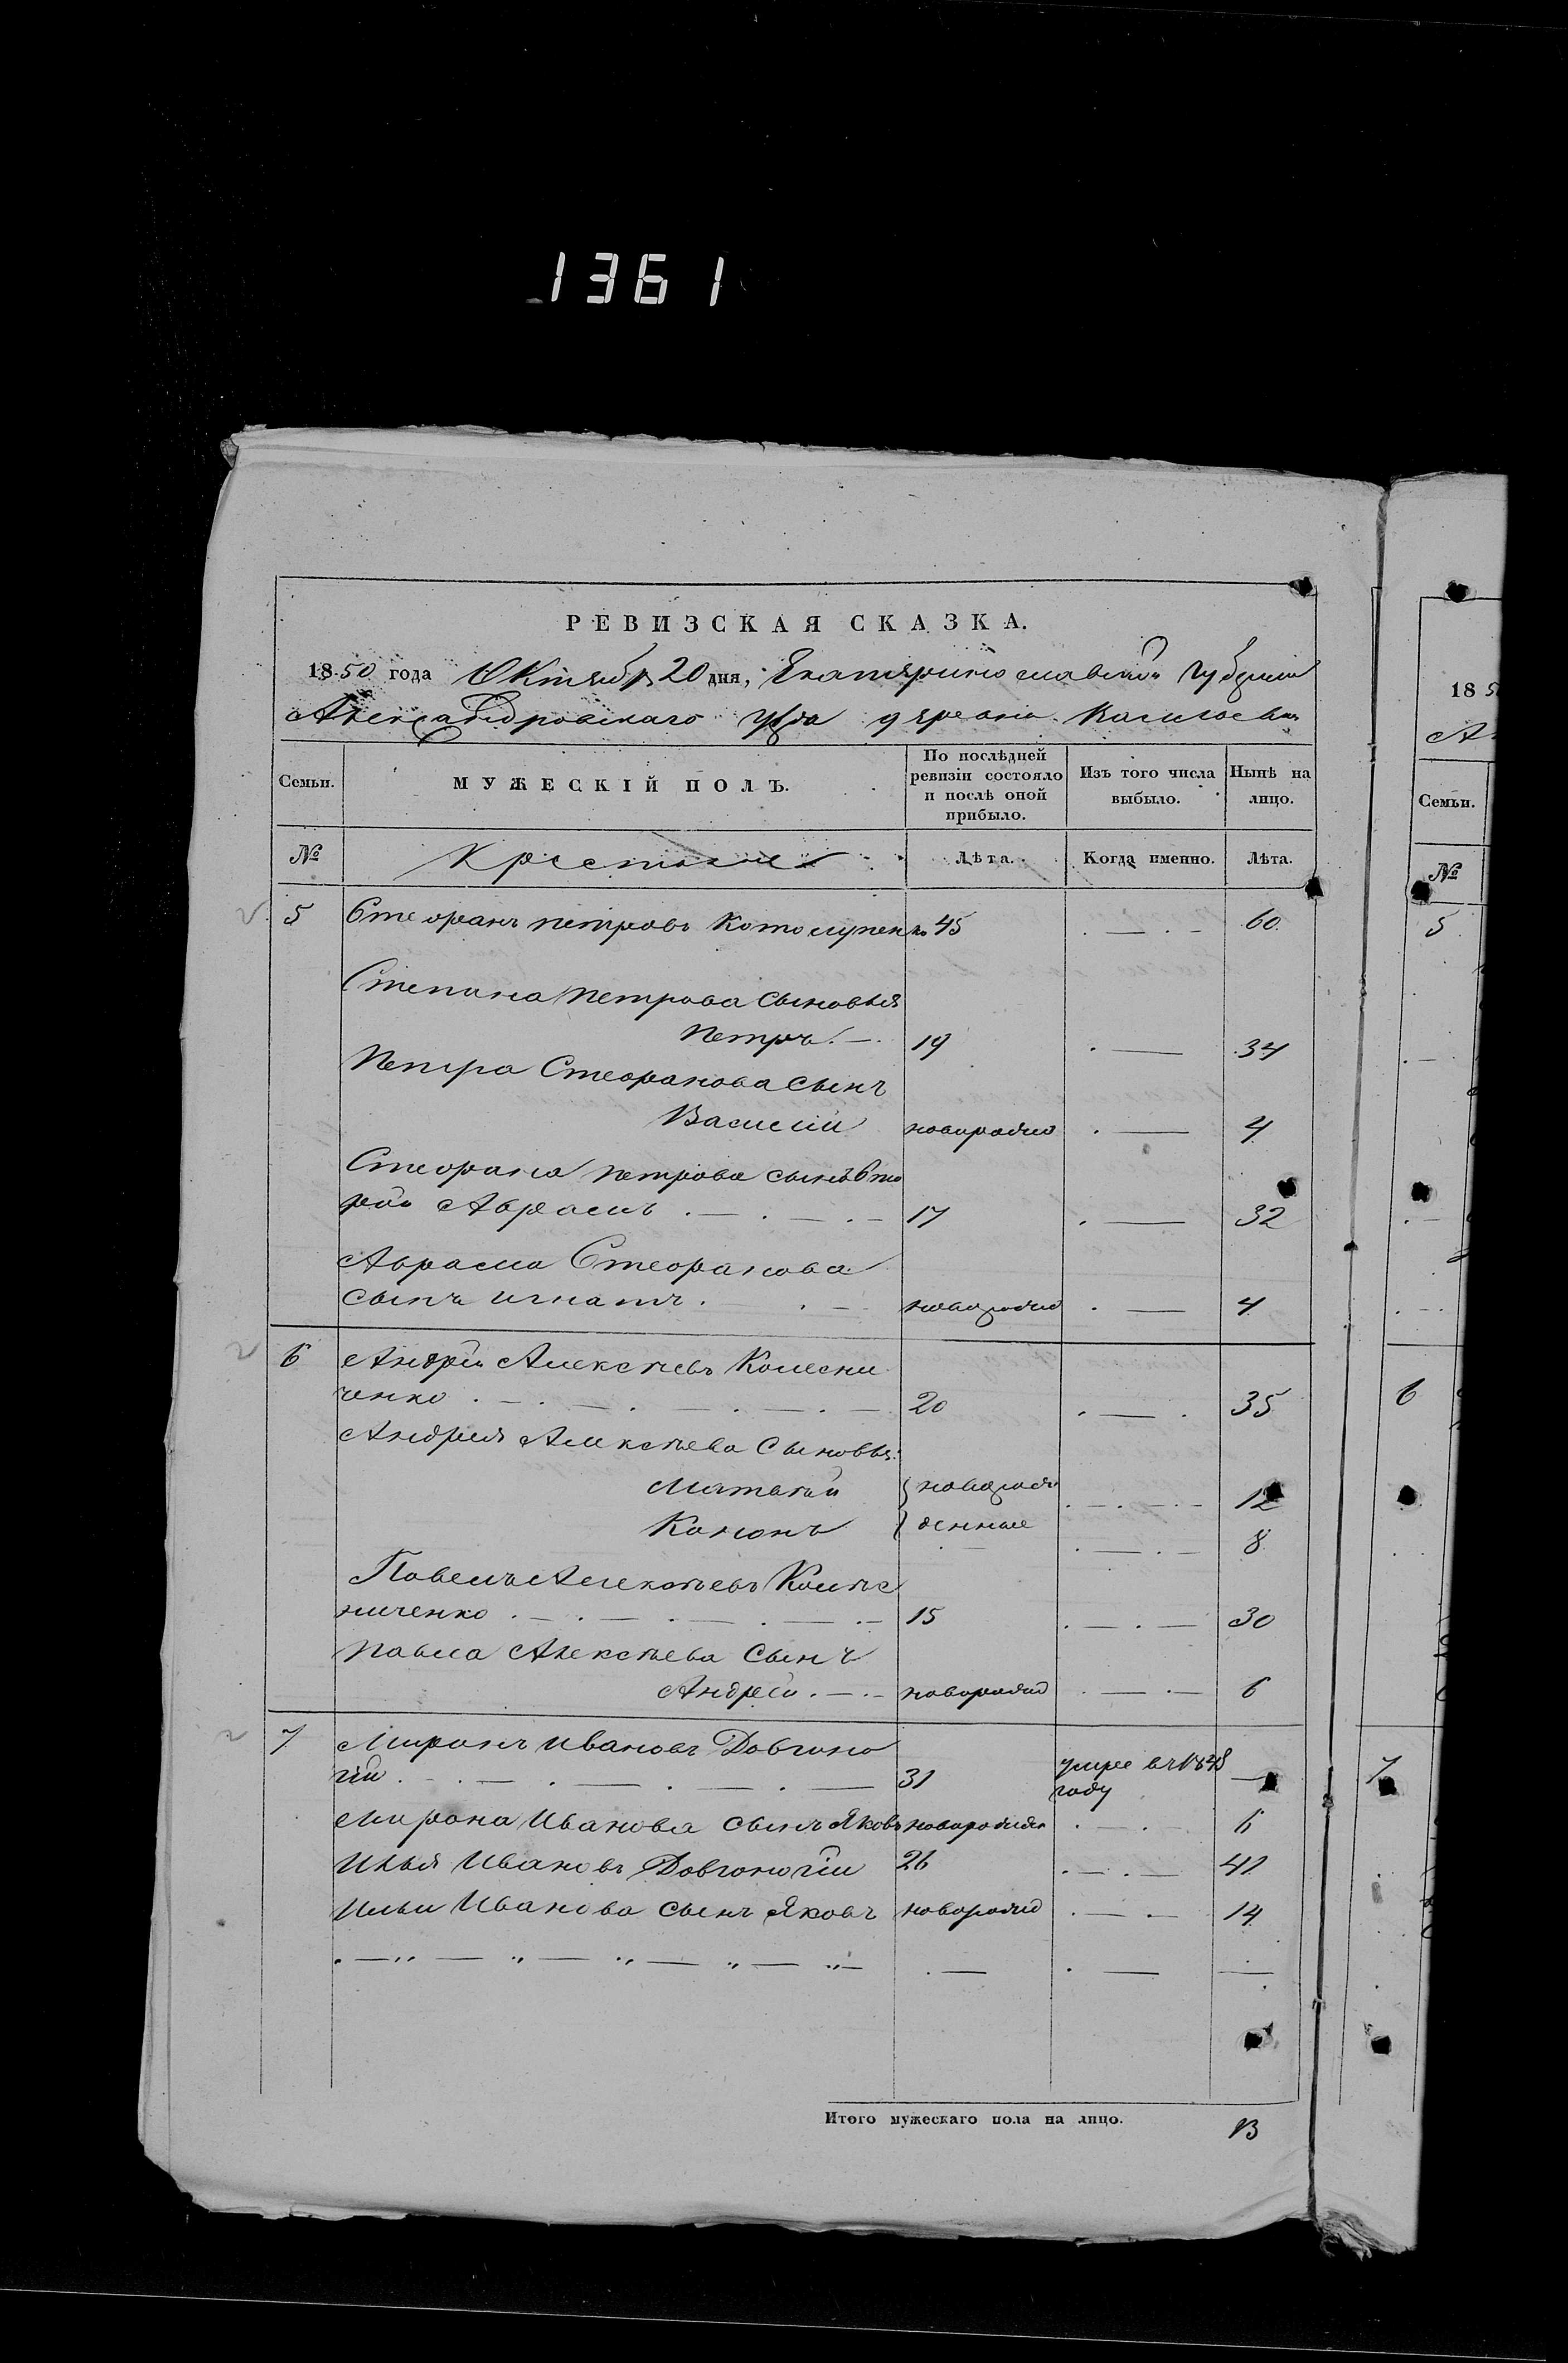 1361
РЕВИЗСКАЯ СКАЗКА.
1850 года Октября 20 дня, Екатеринославской Губернии
Александровскаго уезда деревни
Семьи. МУЖЕСКІЙ ПОЛЪ. По послѣдней ревизіи состояло и послѣ оной прибыло. Изъ того числа выбыло. Нынѣ на лицо.
№ Крестьяне Лѣта. Когда именно. Лѣта.
5 Стефанъ петровъ 45 60
Степана петрова сыновья
Петръ 19 34
Петра Стефанова сынъ
Василій новорожд 4
Стефана петрова сынъ вто
рой Абрамъ 17 32
Абрама Стефанова
сынъ игнатъ новорожд 4
6 Андрей Алексѣевъ Колесни
ченко 20 35
Андрея Алексѣева Сыновья:
Матвѣй новорож 12
Кононъ денные 8
Павелъ Алексѣевъ Колѣс
ниченко 15 30
павла Алексѣева Сынъ
Андрей новорожд 6
7 Миронъ Ивановъ Довгоно
гій 31 умре въ 1848 году
Мирона Иванова сынъ Яковъ новорожден 6
Илья Ивановъ Довгоногій 26 41
Ильи Иванова сынъ Яковъ новорожд 14
Итого мужескаго пола на лицо. 13
18 5
А
Семьи.
№
5
6
7